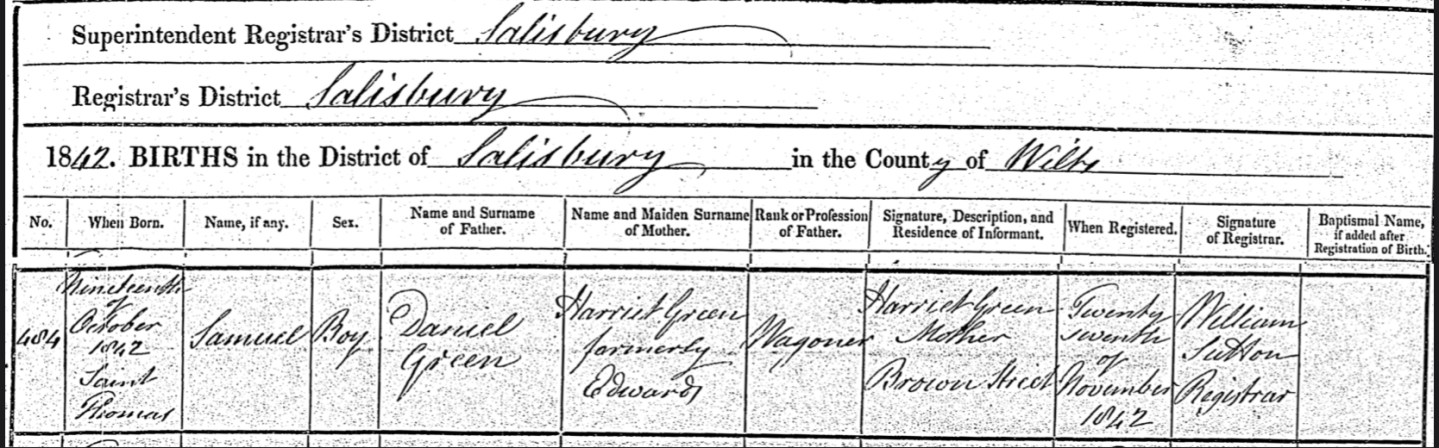 Superintendent Registrar's District Salisbury
Registrar's District Salisbury
1842. BIRTHS in the District of Salisbury in the County of Wilts
No. When Born. Name, if any. Sex. Name and Surname of Father. Name and Maiden Surname of Mother. Rank or Profession of Father. Signature, Description, and Residence of Informant. When Registered. Signature of Registrar. Baptismal Name, if added after Registration of Birth.
484
Nineteenth
of
October
1842
Saint
Thomas
Samuel
Boy
Daniel
Green
Harriet Green
formerly
Edwards
Wagoner
Harriet Green
Mother
Brown Street
Twenty
seventh
of
November
1842
William
Sutton
Registrar